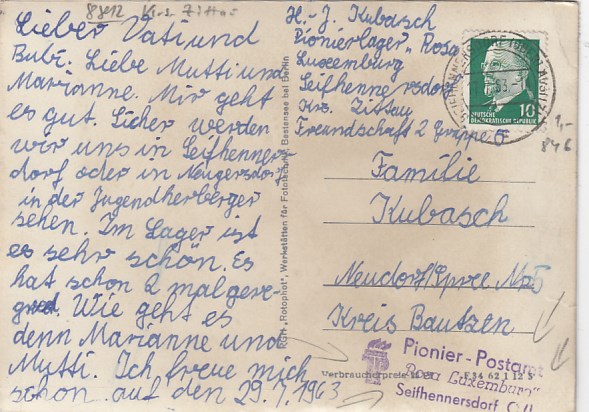 8812 Krs. Zittau
Lieber Vati und
Bubi. Liebe Mutti und
Marianne. Mir geht
es gut. Sicher werden
wir uns in Seifhenners-
dorf oder in Neugersdorf
in der Jugendherberger
sehen. Im Lager ist
es sehr schön. Es
hat schon 2 mal gere-
gnet. Wie geht es
denn Marianne und
Mutti. Ich freue mich
schon auf den 29.7.1963
H.-J. Kubasch
Pionierlager „Rosa
Luxemburg
Seifhennersdorf
Krs. Zittau
Freundschaft 2 Gruppe 6
DEUTSCHE
DEMOKRATISCHE REPUBLIK
10
1,-
846
Familie
Kubasch
Neudorf/Spree Nr. 5
Kreis Bautzen
„Rotophot“, Werkstätten für Fototechnik, Bestensee bei Berlin
Verbraucherpreis
Pionier-Postamt
„Rosa Luxemburg“
Seifhennersdorf